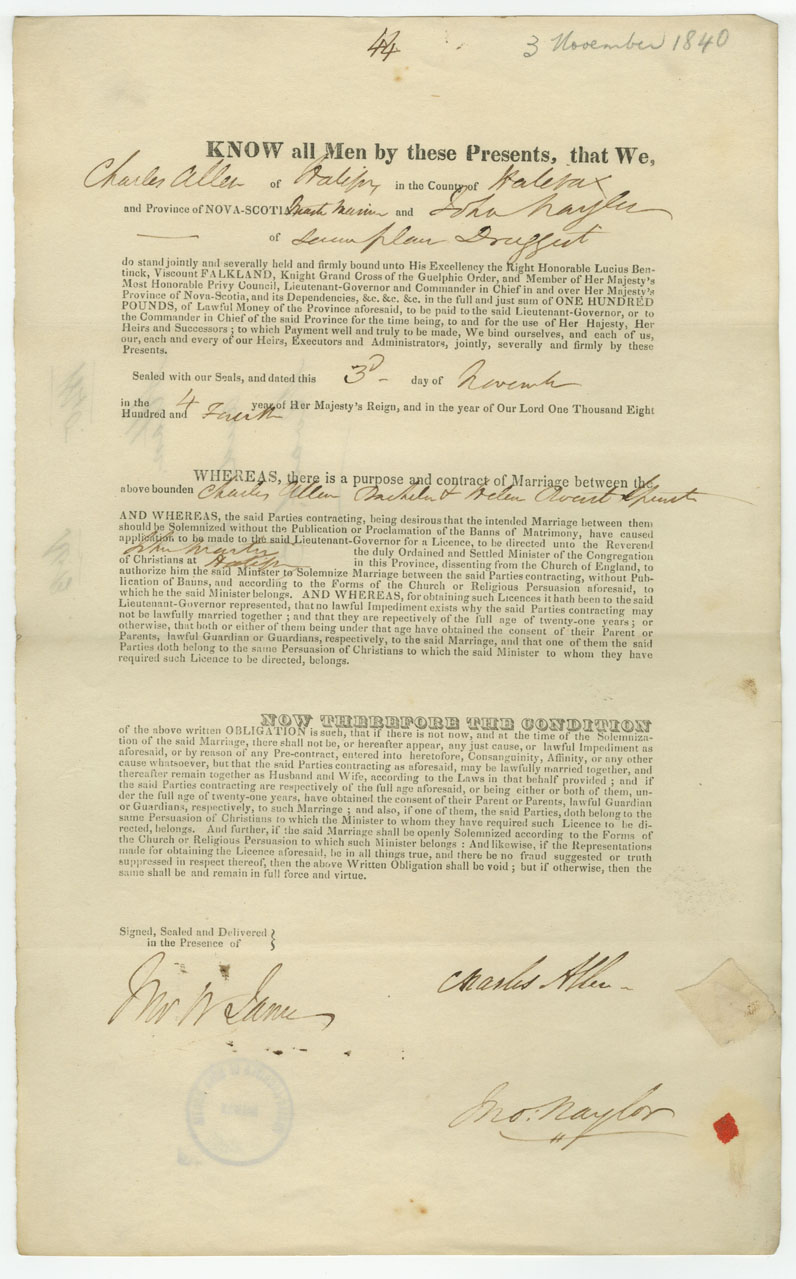 44
3 November 1840
KNOW all Men by these Presents, that We,
Charles Allen of Halifax in the County of Halifax
and Province of NOVA-SCOTIA and John Naylor
— of same place Druggist
do stand jointly and severally held and firmly bound unto His Excellency the Right Honorable Lucius Ben-
tinck, Viscount FALKLAND, Knight Grand Cross of the Guelphic Order, and Member of Her Majesty's
Most Honorable Privy Council, Lieutenant-Governor and Commander in Chief in and over Her Majesty's
Province of Nova-Scotia, and its Dependencies, &c. &c. &c. in the full and just sum of ONE HUNDRED
POUNDS, of Lawful Money of the Province aforesaid, to be paid to the said Lieutenant-Governor, or to
the Commander in Chief of the said Province for the time being, to and for the use of Her Hajesty, Her
Heirs and Successors; to which Payment well and truly to be made, We bind ourselves, and each of us,
our, each and every of our Heirs, Executors and Administrators, jointly, severally and firmly by these
Presents.
Sealed with our Seals, and dated this 3d day of November
in the 4 year of Her Majesty's Reign, and in the year of Our Lord One Thousand Eight
Hundred and Fourth
WHEREAS, there is a purpose and contract of Marriage between the
above bounden Charles Allen Bachelor & Helen Spinster
AND WHEREAS, the said Parties contracting, being desirous that the intended Marriage between them
should be Solemnized without the Publication or Proclamation of the Banns of Matrimony, have caused
application to be made to the said Lieutenant-Governor for a Licence, to be directed unto the Reverend
John Martin the duly Ordained and Settled Minister of the Congregation
of Christians at Halifax in this Province, dissenting from the Church of England, to
authorize him the said Minister to Solemnize Marriage between the said Parties contracting, without Pub-
lication of Banns, and according to the Forms of the Church or Religious Persuasion aforesaid, to
which he the said Minister belongs. AND WHEREAS, for obtaining such Licences it hath been to the said
Lieutenant-Governor represented, that no lawful Impediment exists why the said Parties contracting may
not be lawfully married together; and that they are repectively of the full age of twenty-one years; or
otherwise, that both or either of them being under that age have obtained the consent of their Parent or
Parents, lawful Guardian or Guardians, respectively, to the said Marriage, and that one of them the said
Parties doth belong to the same Persuasion of Christians to which the said Minister to whom they have
required such Licence to be directed, belongs.
NOW THEREFORE THE CONDITION
of the above written OBLIGATION is such, that if there is not now, and at the time of the Solemniza-
tion of the said Marriage, there shall not be, or hereafter appear, any just cause, or lawful Impediment as
aforesaid, or by reason of any Pre-contract, entered into heretofore, Consanguinity, Affinity, or any other
cause whatsoever, but that the said Parties contracting as aforesaid, may be lawfully married together, and
thereafter remain together as Husband and Wife, according to the Laws in that behalf provided; and if
the said Parties contracting are respectively of the full age aforesaid, or being either or both of them, un-
der the full age of twenty-one years, have obtained the consent of their Parent or Parents, lawful Guardian
or Guardians, respectively, to such Marriage; and also, if one of them, the said Parties, doth belong to the
same Persuasion of Christians to which the Minister to whom they have required such Licence to be di-
rected, belongs. And further, if the said Marriage shall be openly Solemnized according to the Forms of
the Church or Religious Persuasion to which such Minister belongs: And likewise, if the Representations
made for obtaining the Licence aforesaid, be in all things true, and there be no fraud suggested or truth
suppressed in respect thereof, then the above Written Obligation shall be void; but if otherwise, then the
same shall be and remain in full force and virtue.
Signed, Sealed and Delivered
in the Presence of
Charles Allen
Jno: Naylor